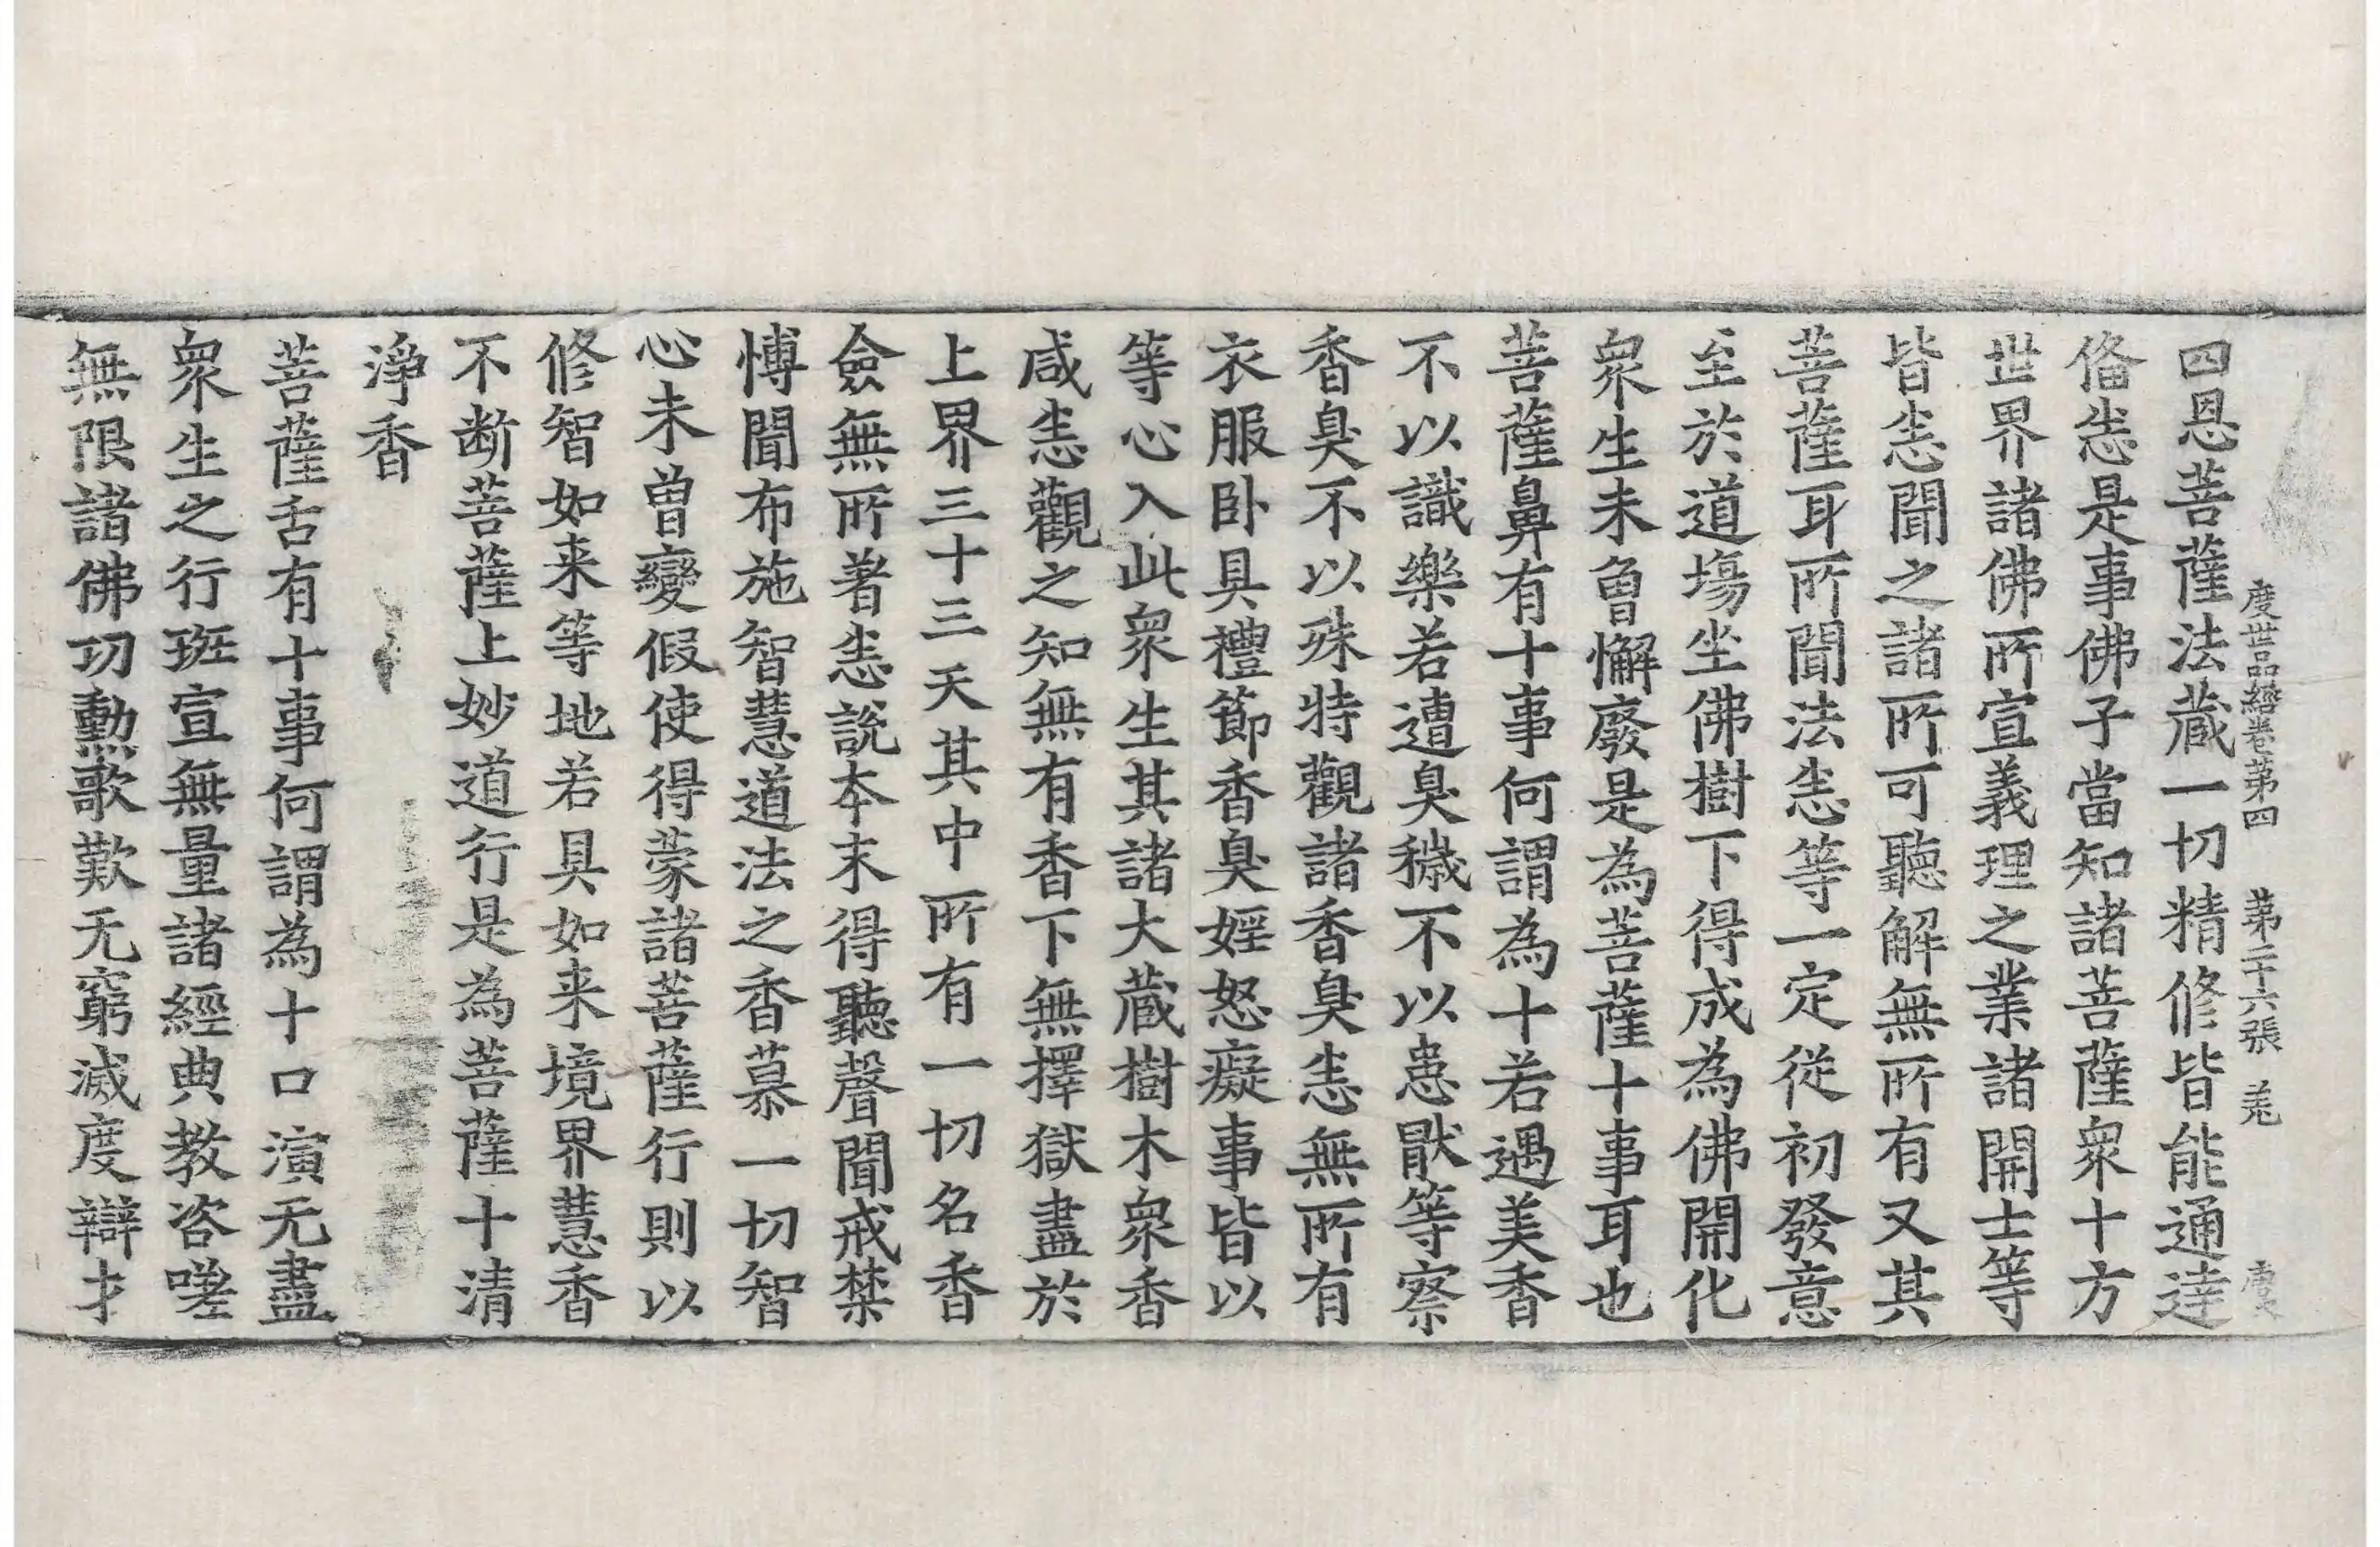 度世品經卷第四 第二十六張 羌
四恩菩薩法蔵一切精修皆能通達
俻恙是事佛子當知諸菩薩衆十方
世界諸佛所宣義理之業諸開士等
皆恙聞之諸所可聽解無所有又其
菩薩耳所聞法恙等一定從初發意
至於道場坐佛樹下得成為佛開化
衆生未曾懈廢是為菩薩十事耳也
菩薩鼻有十事何謂為十若遇美香
不以識樂若遭臭穢不以患猒等察
香臭不以殊特觀諸香臭恙無所有
衣服卧具禮節香臭婬怒癡事皆以
等心入此衆生其諸大蔵樹木衆香
咸恙觀之知無有香下無擇獄盡於
上界三十三天其中所有一切名香
僉無所著恙說本末得聽聲聞戒禁
愽聞布施智慧道法之香慕一切智
心未曾變假使得蒙諸菩薩行則以
修智如来等地若具如来境界慧香
不断菩薩上妙道行是為菩薩十清
淨香
菩薩舌有十事何謂為十口演无盡
衆生之行班宣無量諸經典教咨嗟
無限諸佛功勲歌歎无窮滅度辯才